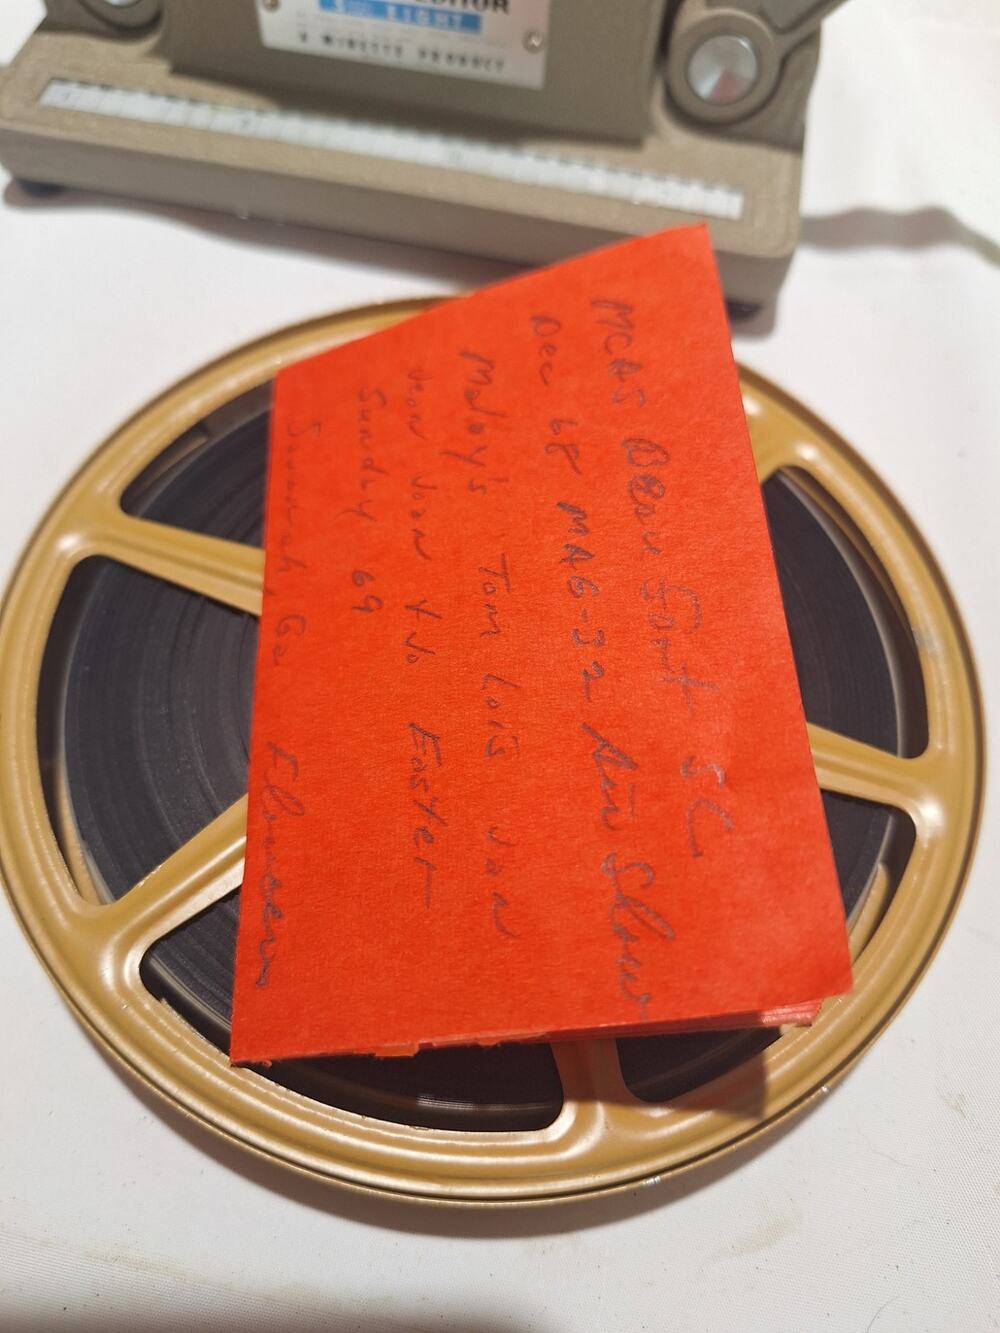 EDITOR
EIGHT
A MINETTE PRODUCT
MCAS Beaufort SC
Dec 68 MAG-32 Air Show
Maloy's Tom Lois Jan
Jean & Jo Easter
Sunday 69
Savannah, Ga Flowers